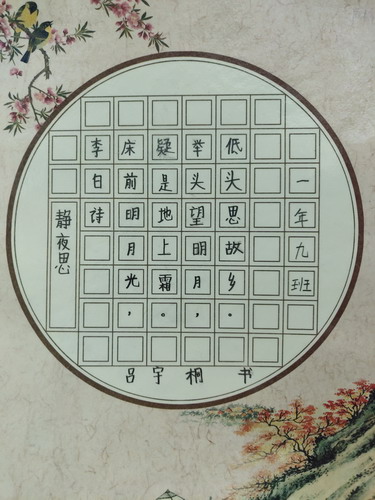 静夜思
李白诗
床前明月光，
疑是地上霜。
举头望明月，
低头思故乡。
一年九班
吕宇桐 书